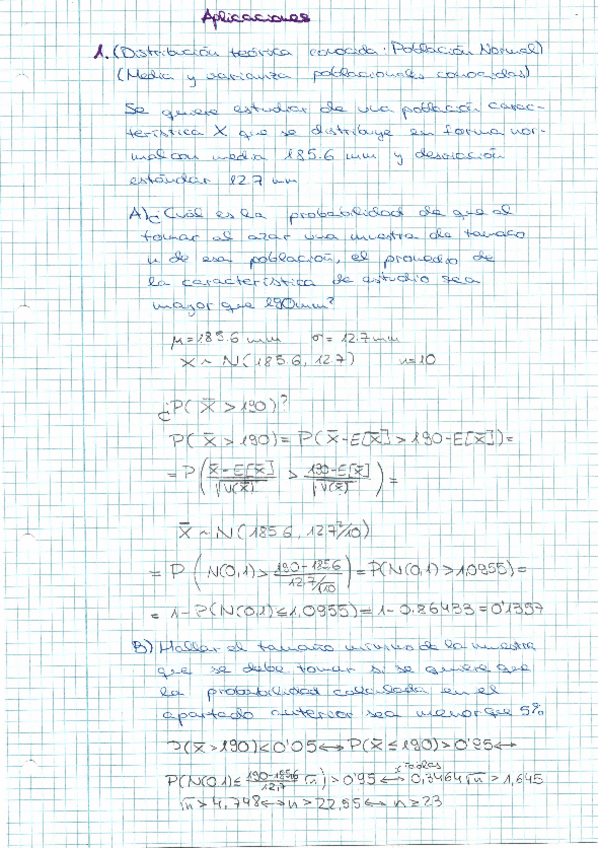 Aplicaciones
1. (Distribución teórica conocida: Población Normal)
(Media y varianza poblacionales conocidas)
Se quiere estudiar de una población carac-
terística X que se distribuye en forma nor-
mal con media 185.6 mm y desviación
estándar 12.7 mm
A) ¿Cuál es la probabilidad de que al
tomar al azar una muestra de tamaño
n de esa población, el promedio de
la característica de estudio sea
mayor que 190mm?
μ = 185.6 mm σ = 12.7 mm
X ~ N(185.6, 12.7) n=10
¿P(X̄ > 190)?
P(X̄ > 190) = P(X̄ - E[X̄] > 190 - E[X̄]) =
= P((X̄ - E[X̄])/√V(X̄) > (190 - E[X̄])/√V(X̄)) =
X̄ ~ N(185.6, 12.7²/10)
= P(N(0,1) > (190 - 185.6)/(12.7/√10)) = P(N(0,1) > 1.0955) =
= 1 - P(N(0,1) ≤ 1,0955) = 1 - 0.86433 = 0'1357
B) Hallar el tamaño mínimo de la muestra
que se debe tomar si se quiere que
la probabilidad calculada en el
apartado anterior sea menor que 5%
P(X̄ > 190) < 0'05 ↔ P(X̄ ≤ 190) > 0'95 ↔
P(N(0,1) ≤ (190 - 185.6)/12.7 √n) > 0'95 ↔ 0,3464√n > 1,645
√n > 4,748 ↔ n > 22,55 ↔ n ≥ 23